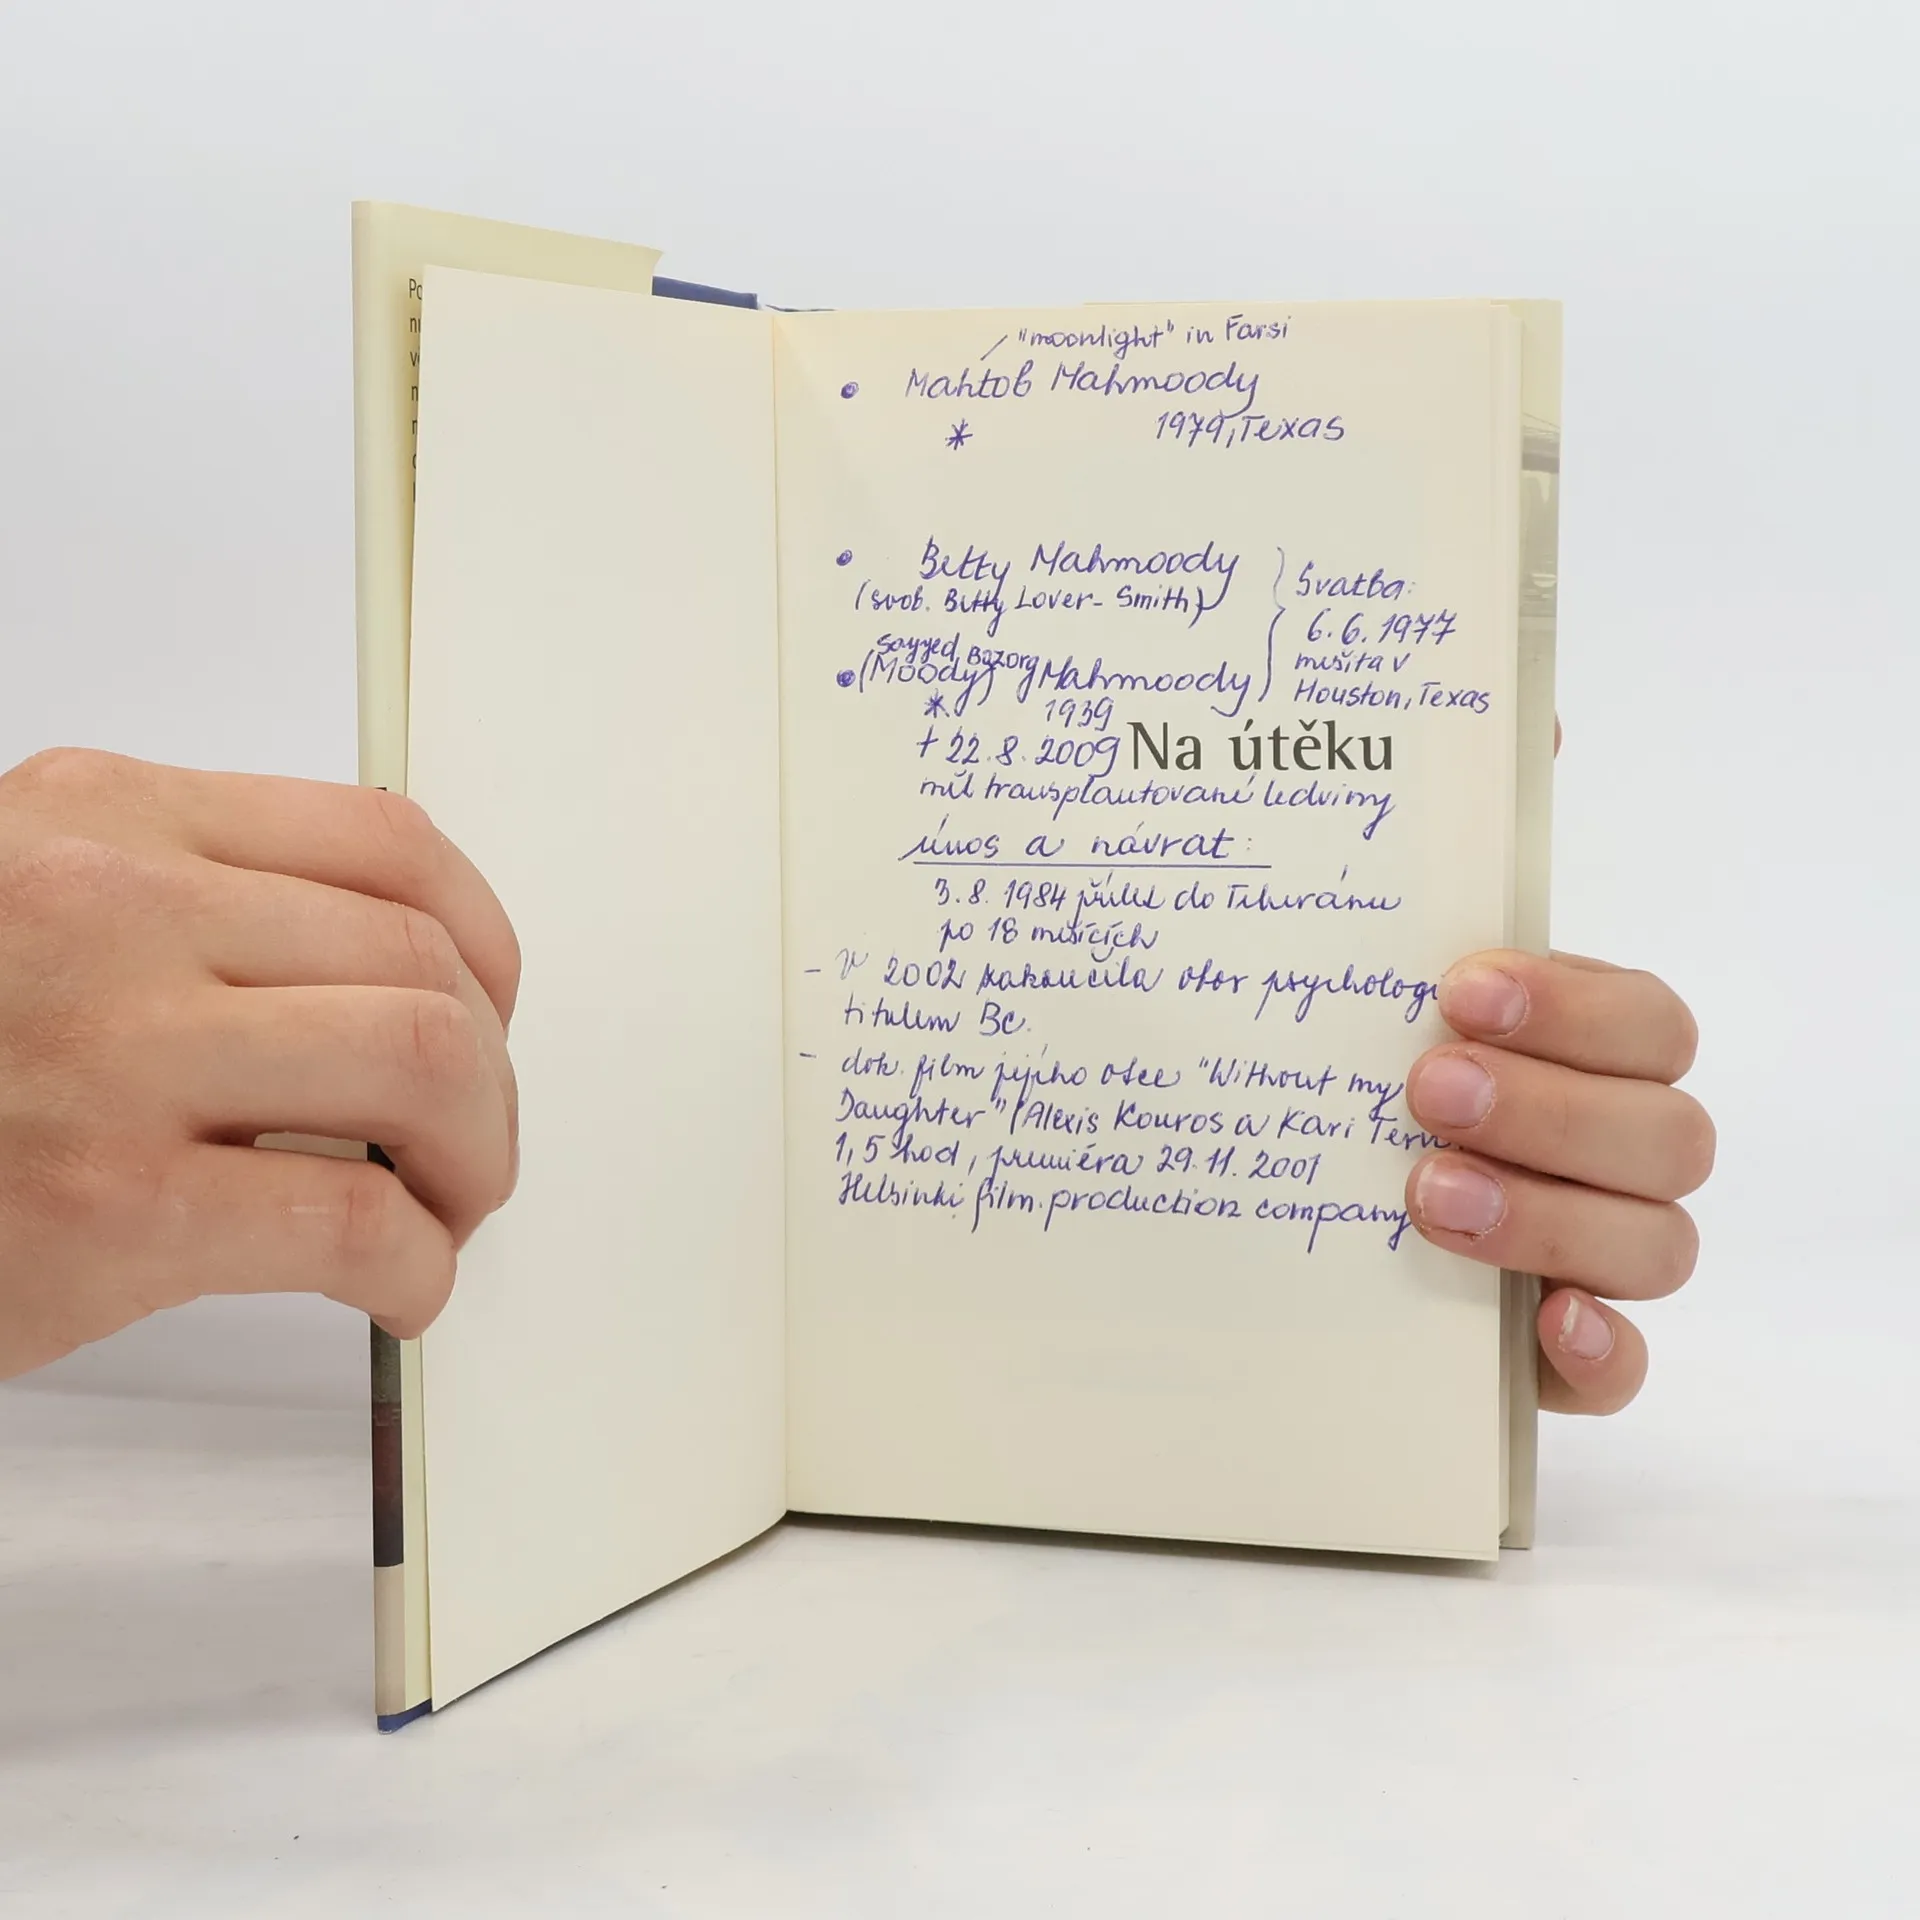 Po
nu
"moonlight" in Farsi
• Mahtob Mahmoody
* 1979, Texas
• Betty Mahmoody
(svob. Betty Lover-Smith)
Svatba:
6.6.1977
mešita v
Houston, Texas
Sayyed Bozorg
• (Moody) Mahmoody
* 1939
† 22.8.2009
Na útěku
měl transplantované ledviny
únos a návrat:
3.8.1984 přílet do Teheránu
po 18 měsících
- v 2002 zakončila obor psychologi
titulem Bc.
- dok. film jejího otce "Without my
Daughter" (Alexis Kouros a Kari Terv
1,5 hod, premiéra 29.11.2001
Helsinki film. production company